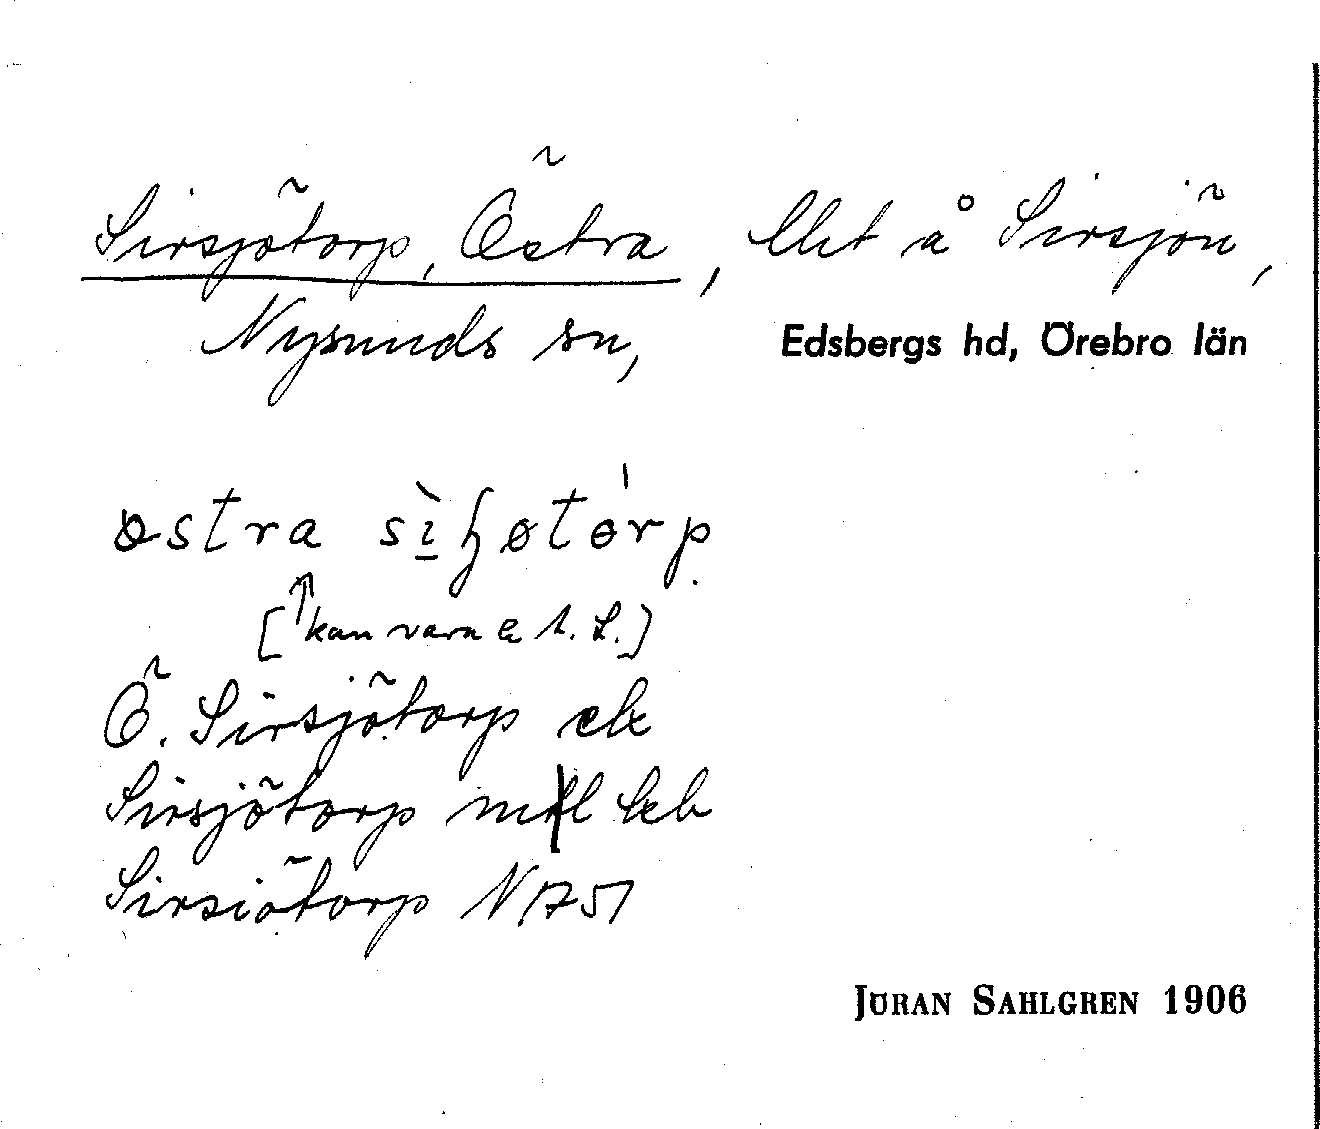 Sirsjötorp, Östra, llht å Sirsjön,
Nysunds sn, Edsbergs hd, Örebro län
östra sìɧøtórp
[↑ kan vara
Ö. Sirsjötorp ek
Sirsjötorp
Sirsiötorp N 1751
JÖRAN SAHLGREN 1906